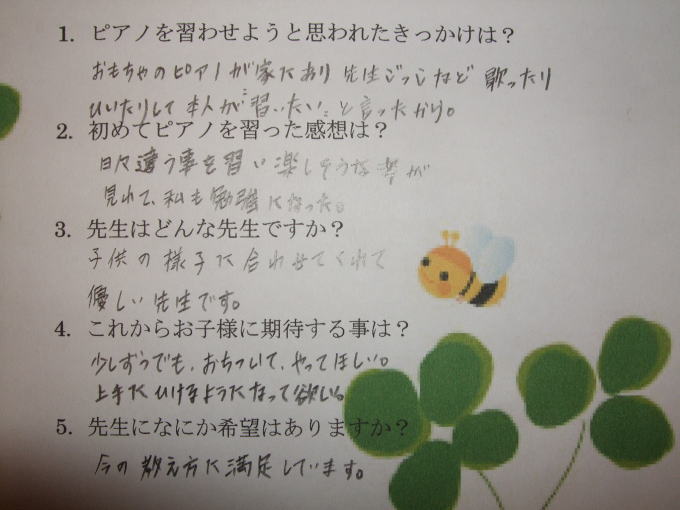 1. ピアノを習わせようと思われたきっかけは？
おもちゃのピアノが家にあり 先生ごっこなど 歌ったり
ひいたりして 本人が "習いたい" と言ったから。
2. 初めてピアノを習った感想は？
日々違う事を習い 楽しそうな姿が
見れて、私も勉強になった。
3. 先生はどんな先生ですか？
子供の様子に合わせてくれて
優しい先生です。
4. これからお子様に期待する事は？
少しずつでも、おちついて、やってほしい。
上手にひけるようになって欲しい。
5. 先生になにか希望はありますか？
今の教え方に満足しています。